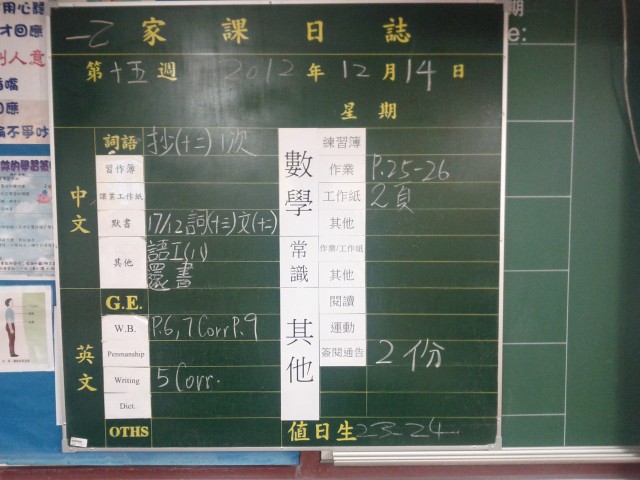 一乙 家課日誌
第十五週 2012年12月14日
星期
中文
詞語 抄(十二)1次
習作簿
課業工作紙
默書 17/12詞(十三)文(十二)
其他 語工(八)
還書
英文
G.E.
W.B. P.6,7 Corr P.9
Penmanship
Writing 5 Corr.
Dict.
OTHS
數學
練習簿
作業 P.25-26
工作紙 2頁
其他
常識
作業/工作紙
其他
其他
閱讀
運動
簽閱通告 2份
值日生 23-24
用心聽
才回應
別人意
嘴
回應
不爭吵
期
e: